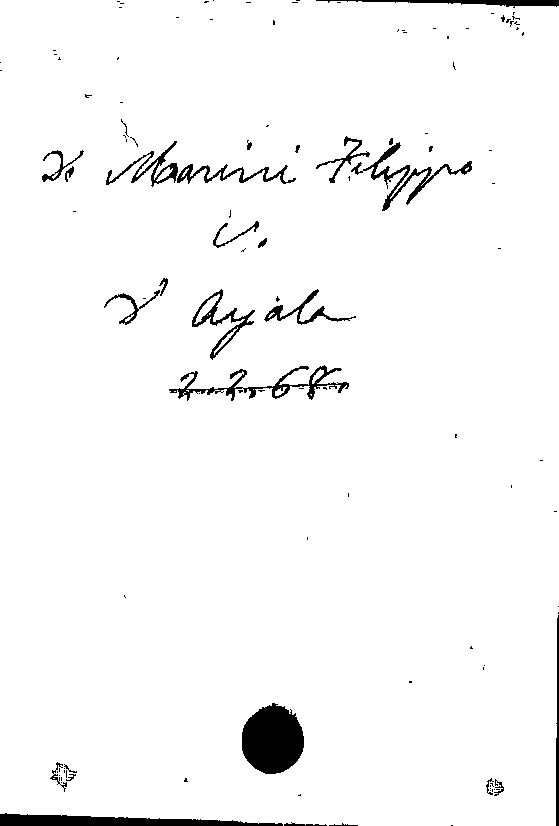 Di Marini Filippo
V.
D' Ayala
2.2.68.